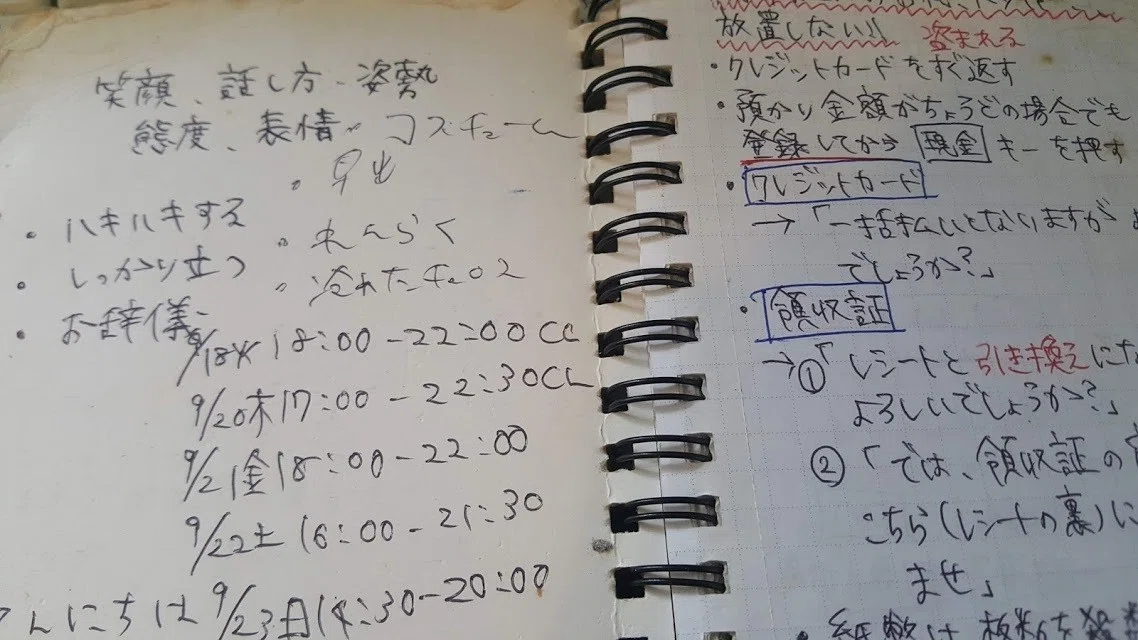 笑顔、話し方、姿勢
態度、表情。コスチューム
・早出
・ハキハキする
・れんらく
・しっかり立つ
・冷れたチュロス
・お辞儀
9/18火 18:00-22:00 CL
9/20木 17:00-22:30 CL
9/21金 18:00-22:00
9/22土 16:00-21:30
んにちは 9/23日 14:30-20:00
放置しない!! 盗まれる
・クレジットカードをすぐ返す
・預かり金額がちょうどの場合でも
登録してから 現金 キーを押す
・クレジットカード
→「一括払いとなりますが
でしょうか?」
・領収証
→①「レシートと引き換えにな
よろしいでしょうか?」
②「では、領収証の
こちら(レシートの裏)に
ませ」
・紙幣は枚数を